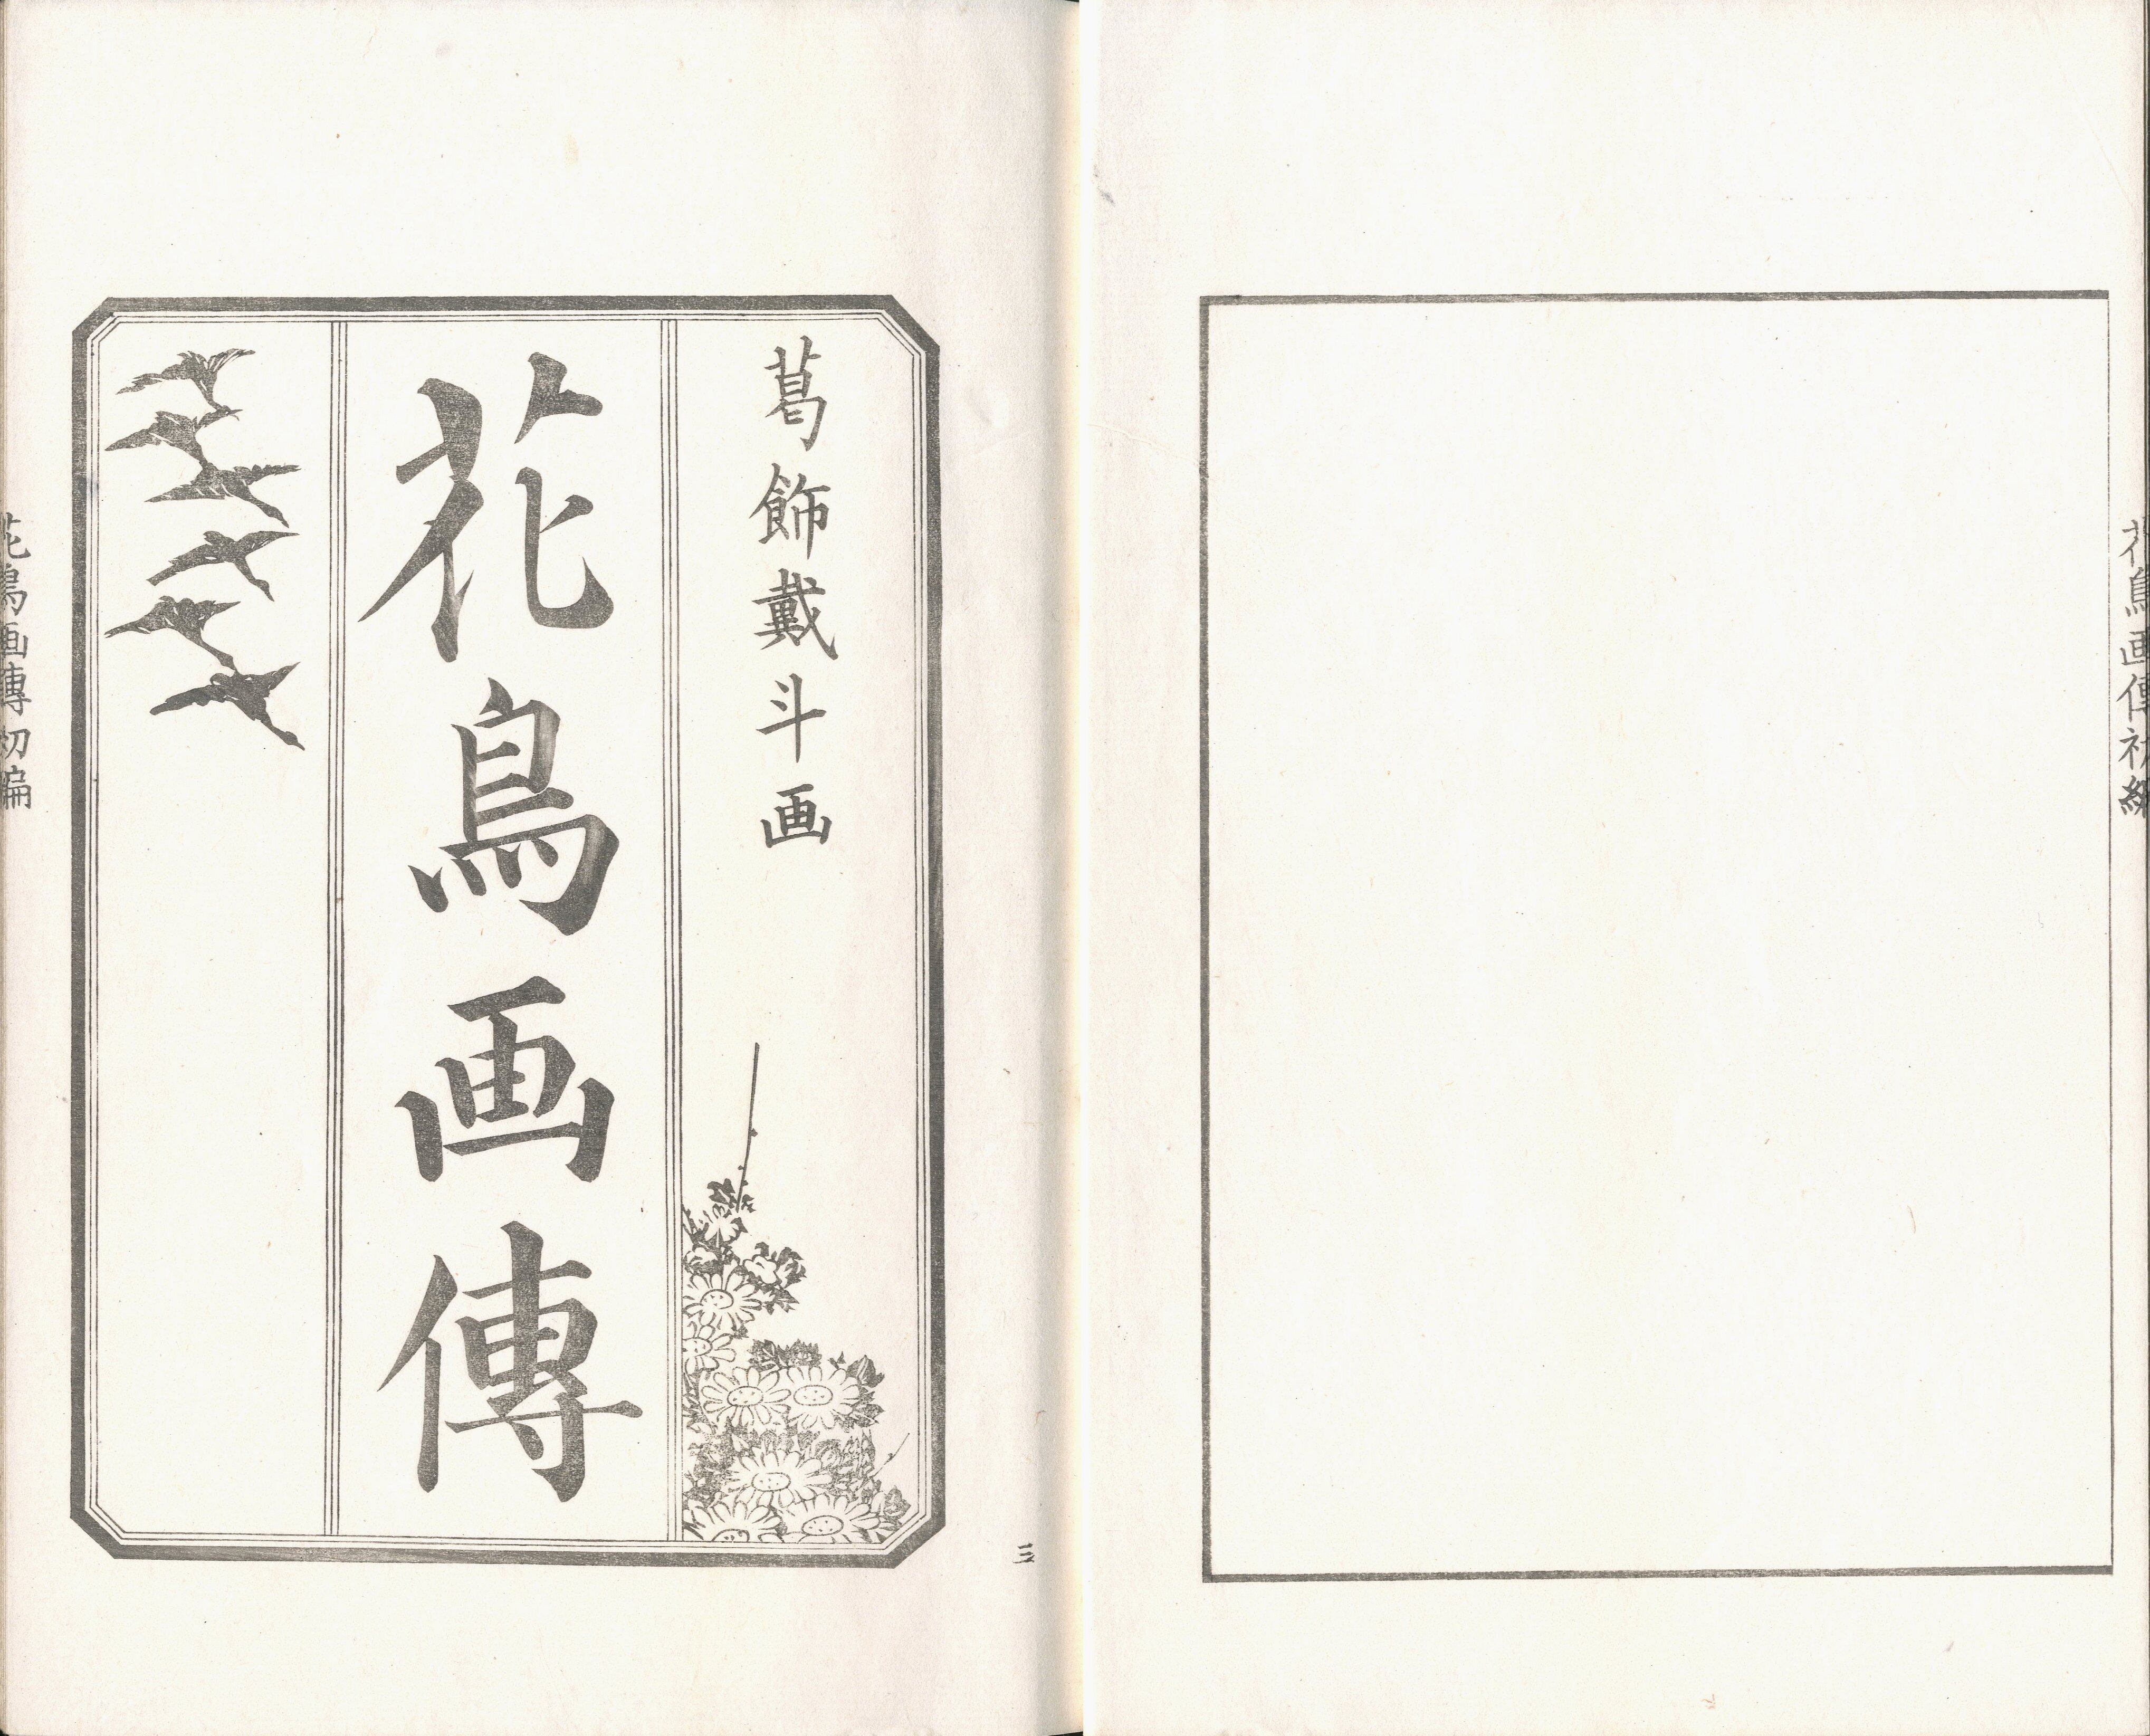 花鳥画傳初編
葛飾戴斗画
花鳥画傳
三
花鳥画傳初編